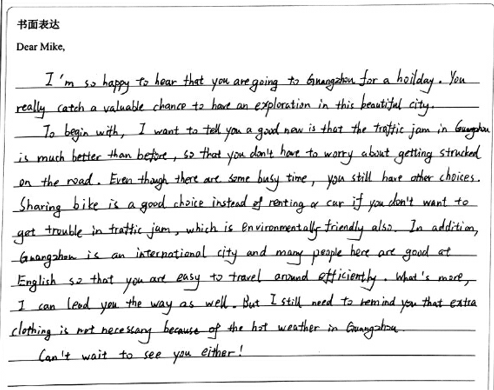 书面表达
Dear Mike,
I'm so happy to hear that you are going to Guangzhou for a hoilday. You
really catch a valuable chance to have an exploration in this beautiful city.
To begin with, I want to tell you a good new is that the traffic jam in Guangzhou
is much better than before, so that you don't have to worry about getting strucked
on the road. Even though there are some busy time, you still have other choices.
Sharing bike is a good choice instead of renting a car if you don't want to
get trouble in traffic jam, which is environmentally friendly also. In addition,
Guangzhou is an international city and many people here are good at
English so that you are easy to travel around efficiently. What's more,
I can lead you the way as well. But I still need to remind you that extra
clothing is not necessary because of the hot weather in Guangzhou.
Can't wait to see you either!